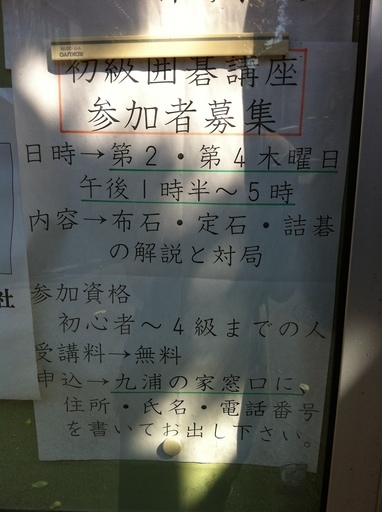 初級囲碁講座
参加者募集
日時→第2・第4木曜日
午後1時半～5時
内容→布石・定石・詰碁
の解説と対局
参加資格
初心者～4級までの人
受講料→無料
申込→九浦の家窓口に、
住所・氏名・電話番号
を書いてお出し下さい。
社